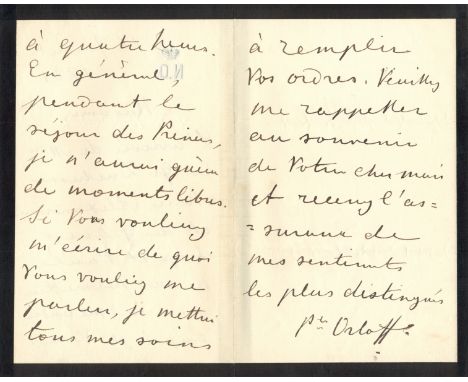 à quatre heures.
En général,
pendant le
séjour des Princes,
je n'aurai guère
de moments libres.
Si Vous vouliez
m'écrire de quoi
Vous vouliez me
parler, je mettrai
tous mes soins
à remplir
Vos ordres. Veuillez
me rappeller
au souvenir
de Votre cher mari
et recevez l'as=
=surance de
mes sentiments
les plus distingués
Pce Orloff.
N.O